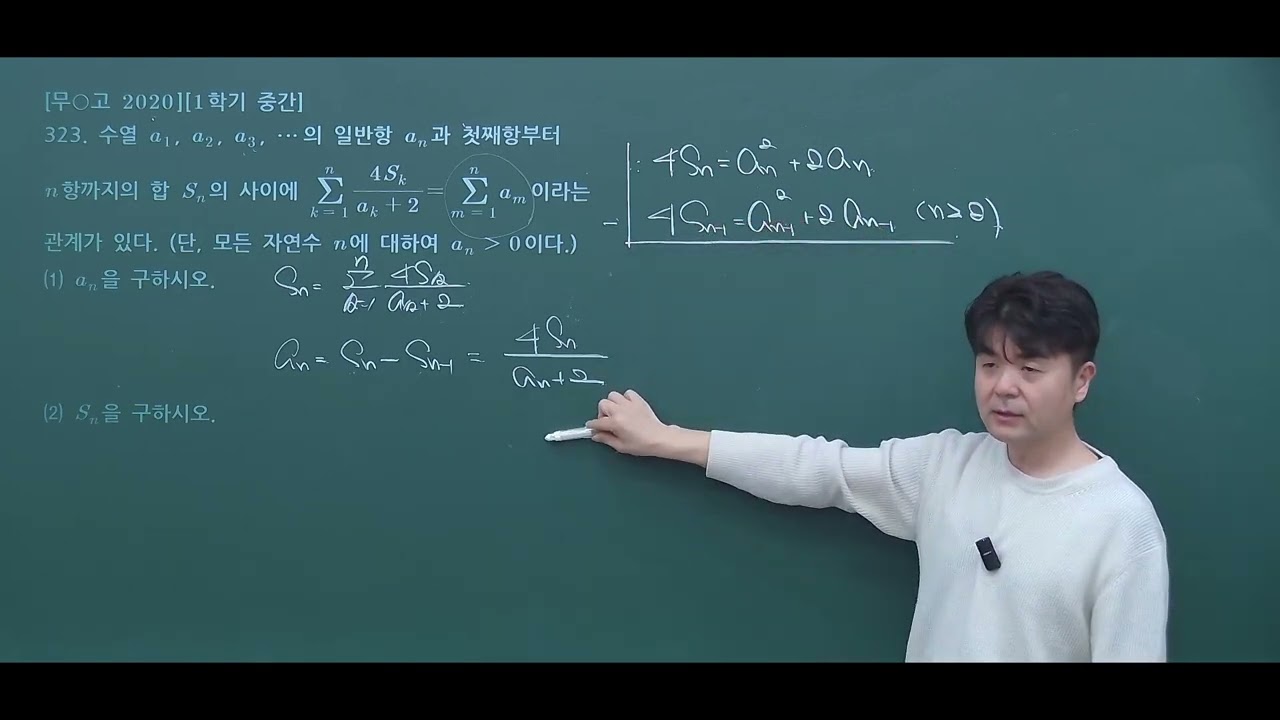 [무○고 2020][1학기 중간]
323. 수열 a₁, a₂, a₃, ⋯의 일반항 aₙ과 첫째항부터
n항까지의 합 Sₙ의 사이에 ∑_{k=1}^{n} 4Sₖ/(aₖ+2) = ∑_{m=1}^{n} aₘ이라는
관계가 있다. (단, 모든 자연수 n에 대하여 aₙ > 0이다.)
⑴ aₙ을 구하시오.
Sₙ = ∑_{k=1}^{n} 4Sₖ/(aₖ+2)
aₙ = Sₙ − Sₙ₋₁ = 4Sₙ/(aₙ+2)
⑵ Sₙ을 구하시오.
: 4Sₙ = aₙ² + 2aₙ
− 4Sₙ₋₁ = aₙ₋₁² + 2aₙ₋₁ (n≥2)